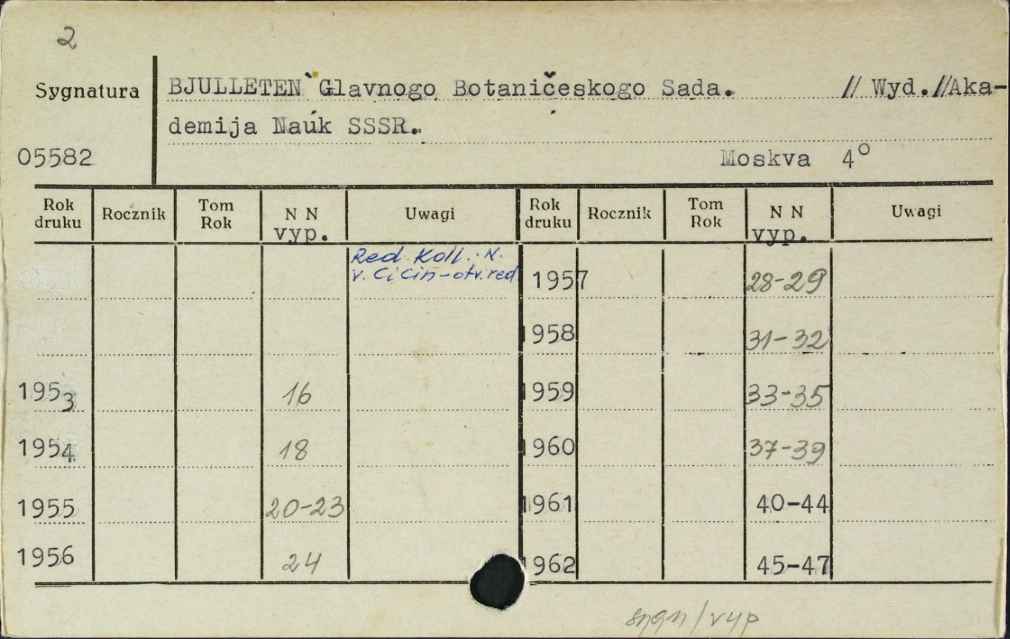 2
Sygnatura
BJULLETEN` Glavnogo Botaničeskogo Sada. // Wyd.//Aka-
demija Nauk SSSR.
05582
Moskva 4°
Rok druku Rocznik Tom Rok N N vyp. Uwagi Rok druku Rocznik Tom Rok N N vyp. Uwagi
Red. Koll.: N.
v. Cicin-otv.red
1957 28-29
1958 31-32
1953 16 1959 33-35
1954 18 1960 37-39
1955 20-23 1961 40-44
1956 24 1962 45-47
/vyp